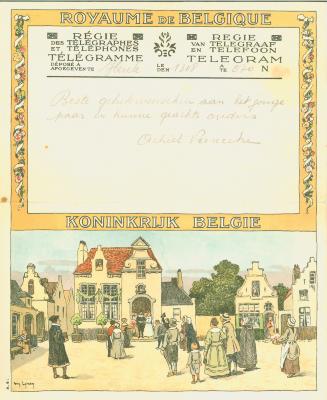 ROYAUME DE BELGIQUE
RÉGIE
DES TÉLÉGRAPHES
ET TÉLÉPHONES
TÉLÉGRAMME
DÉPOSÉ À
AFGEGEVEN TE
LE
DEN
REGIE
VAN TELEGRAAF
EN TELEFOON
TELEGRAM
À
TE
N
Beste gelukwenschen aan het jonge
paar en hunne geachte ouders
KONINKRIJK BELGIE